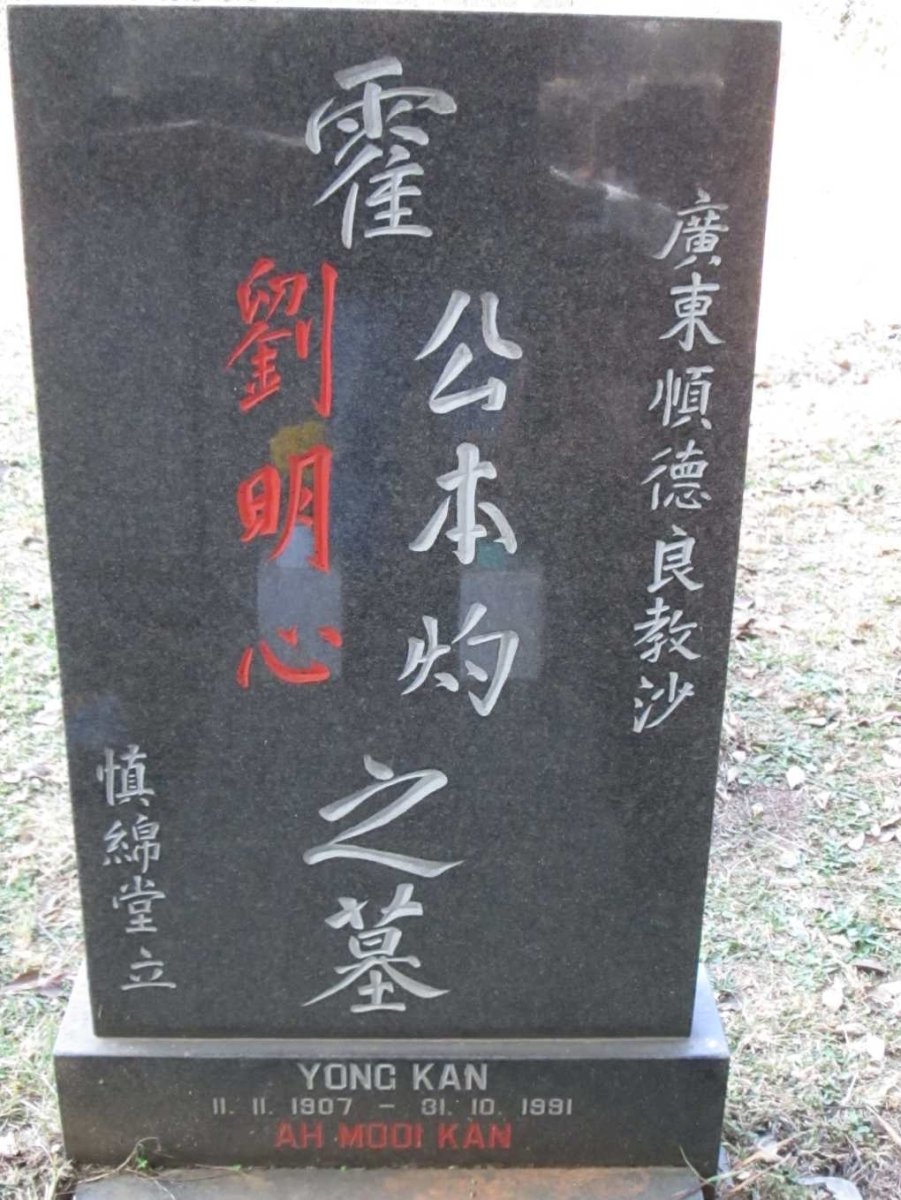 廣東順德良教沙
霍
公本灼
劉明心
之墓
慎綿堂立
YONG KAN
11. 11. 1907 – 31. 10. 1991
AH MOOI KAN